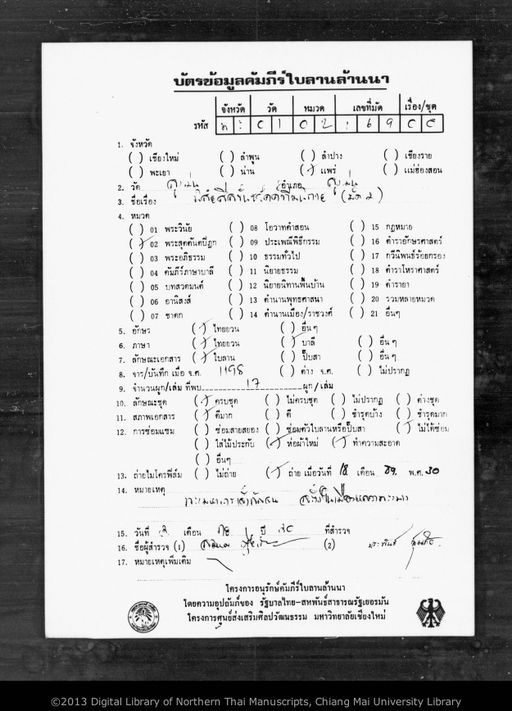 บัตรข้อมูลคัมภีร์ใบลานล้านนา
จังหวัด วัด หมวด เลขที่มัด เรื่อง/ชุด
รหัส พ : 0 1 0 2 : 6 9 0 0
1. จังหวัด
( ) เชียงใหม่ ( ) ลำพูน ( ) ลำปาง ( ) เชียงราย
( ) พะเยา ( ) น่าน (/) แพร่ ( ) แม่ฮ่องสอน
2. วัด สูงเม่น อำเภอ สูงเม่น
3. ชื่อเรื่อง
4. หมวด
( ) 01 พระวินัย ( ) 08 โอวาทคำสอน ( ) 15 กฎหมาย
(/) 02 พระสุตตันตปิฎก ( ) 09 ประเพณีพิธีกรรม ( ) 16 ตำราอักษรศาสตร์
( ) 03 พระอภิธรรม ( ) 10 ธรรมทั่วไป ( ) 17 กวีนิพนธ์ร้อยกรอง
( ) 04 คัมภีร์ภาษาบาลี ( ) 11 นิยายธรรม ( ) 18 ตำราโหราศาสตร์
( ) 05 บทสวดมนต์ ( ) 12 นิยายนิทานพื้นบ้าน ( ) 19 ตำรายา
( ) 06 อานิสงส์ ( ) 13 ตำนานพุทธศาสนา ( ) 20 รวมหลายหมวด
( ) 07 ชาดก ( ) 14 ตำนานเมือง/ราชวงศ์ ( ) 21 อื่นๆ
5. อักษร (/) ไทยยวน ( ) อื่นๆ
6. ภาษา (/) ไทยยวน (/) บาลี ( ) อื่นๆ
7. ลักษณะเอกสาร (/) ใบลาน ( ) ปั๊บสา ( ) อื่นๆ
8. จาร/บันทึก เมื่อ จ.ศ. 1198 ( ) ค่าง จ.ศ. ( ) ไม่ปรากฏ
9. จำนวนผูก/เล่ม ที่พบ 17 ผูก/เล่ม
10. ลักษณะชุด (/) ครบชุด ( ) ไม่ครบชุด ( ) ไม่ปรากฏ ( ) ต่างชุด
11. สภาพเอกสาร (/) ดีมาก ( ) ดี ( ) ชำรุดบ้าง ( ) ชำรุดมาก
12. การซ่อมแซม ( ) ซ่อมสายสยอง ( ) ซ่อมตัวใบลานหรือปั๊บสา ( ) ไม่ได้ซ่อม
( ) ใส่ไม้ประกับ (/) ห่อผ้าใหม่ (/) ทำความสะอาด
( ) อื่นๆ
13. ถ่ายไมโครฟิล์ม ( ) ไม่ถ่าย (/) ถ่าย เมื่อวันที่ 18 เดือน พ.ศ. 30
14. หมายเหตุ
15. วันที่ เดือน ปี 30 ที่สำรวจ
16. ชื่อผู้สำรวจ (1) (2)
17. หมายเหตุเพิ่มเติม
โครงการอนุรักษ์คัมภีร์ใบลานล้านนา
โดยความอุปถัมภ์ของ รัฐบาลไทย-สหพันธ์สาธารณรัฐเยอรมัน
โครงการศูนย์ส่งเสริมศิลปวัฒนธรรม มหาวิทยาลัยเชียงใหม่
©2013 Digital Library of Northern Thai Manuscripts, Chiang Mai University Library